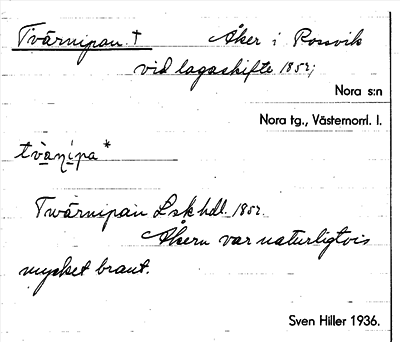 Tvärnipan † Åker i Rossvik
vid lagaskifte 1852;
Nora s:n
Nora tg., Västernorrl. l.
tvànipa *
Twärnipan Lskhdl. 1852.
Åkern var naturligtvis
mycket brant.
Sven Hiller 1936.